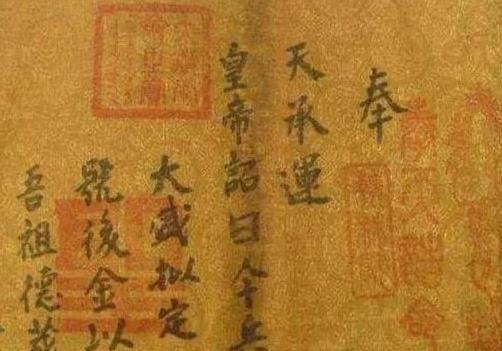 奉
天承運
皇帝詔曰今兵
大盛拟定
號後金以
吾祖德